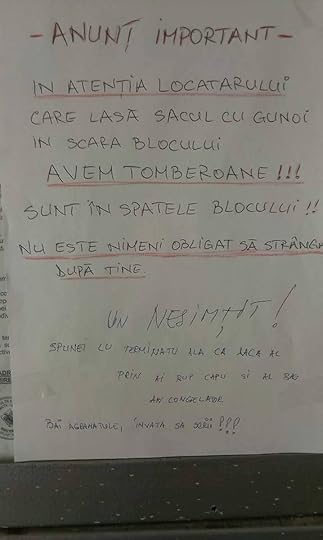 - ANUNȚ IMPORTANT -
IN ATENȚIA LOCATARULUI
CARE LASĂ SACUL CU GUNOI
IN SCARA BLOCULUI
AVEM TOMBEROANE !!!
SUNT ÎN SPATELE BLOCULUI !!
NU ESTE NIMENI OBLIGAT SĂ STRÂNGĂ
DUPĂ TINE.
UN NESIMȚIT!
SPUNEI LU TERMINATU ALA CA DACA AL
PRIN AI RUP CAPU SI AL BAG
IN CONGELATOR
BĂI AGRAMATULE, ÎNVAȚA SĂ SCRII !!!